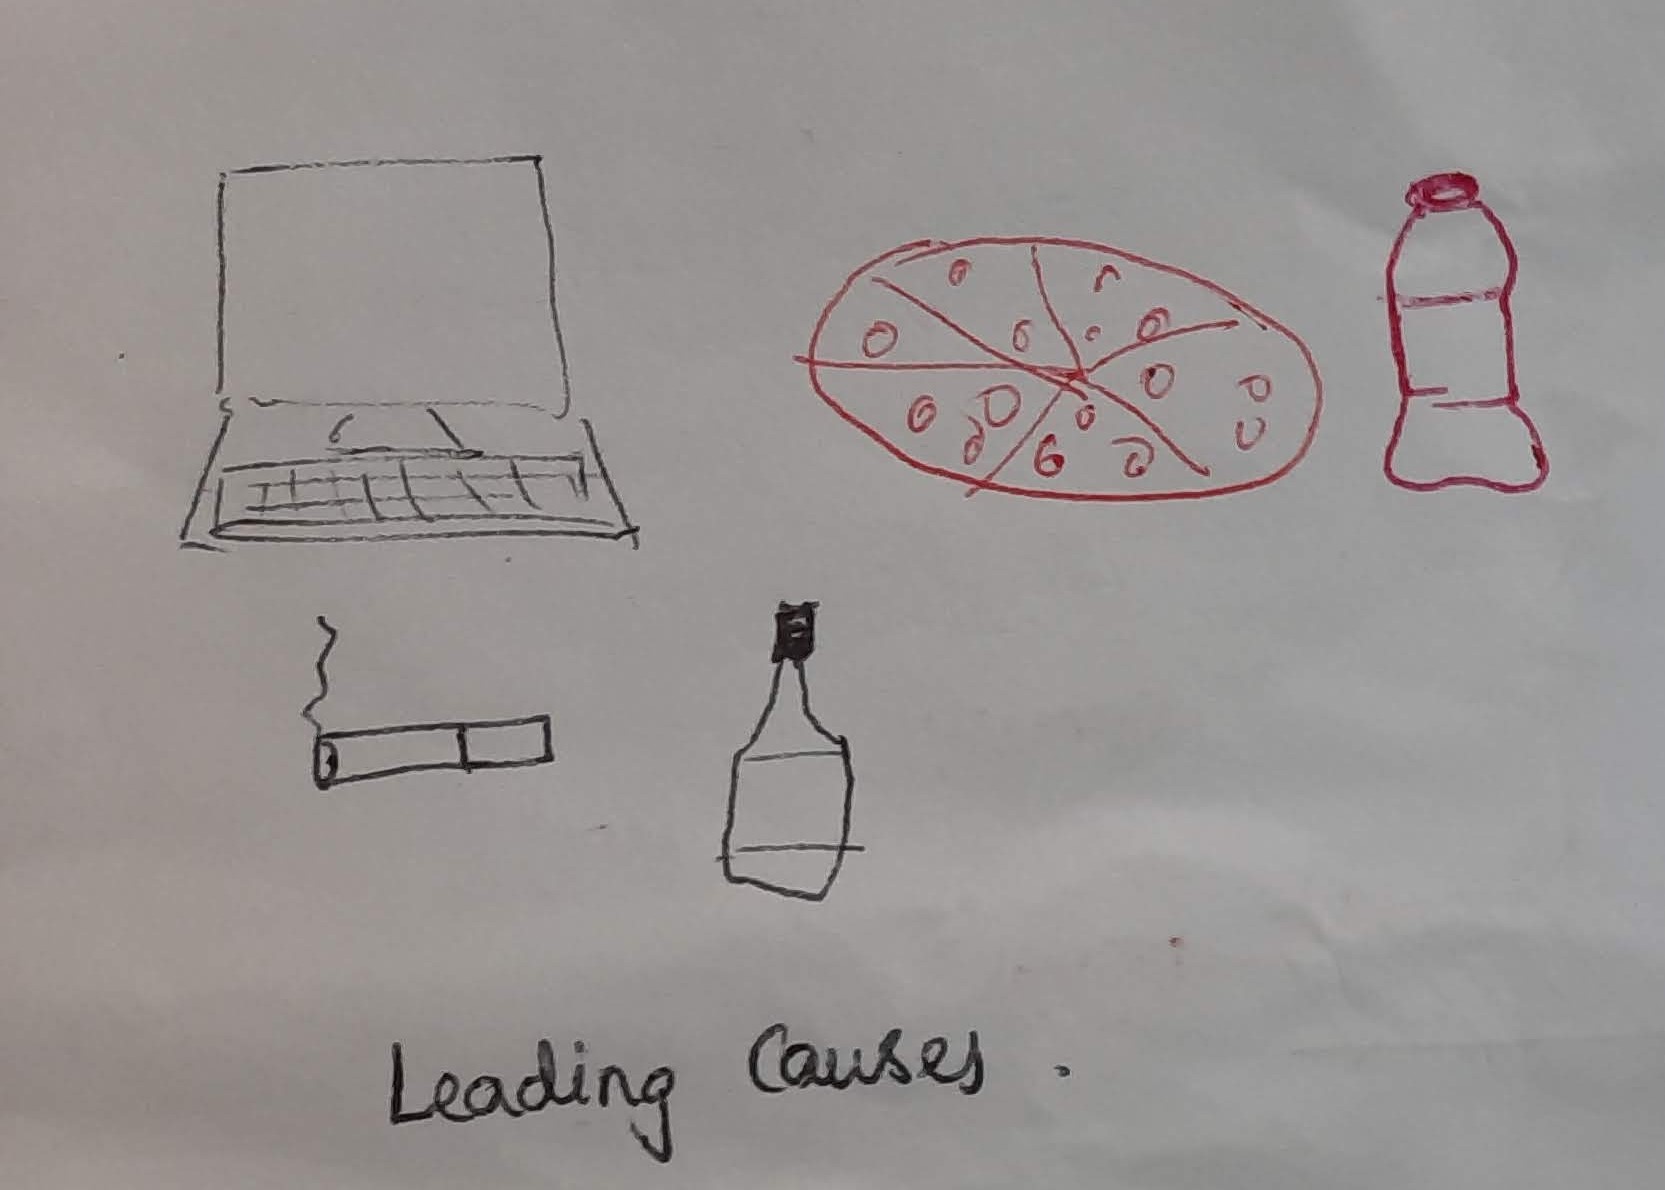 Leading Causes.